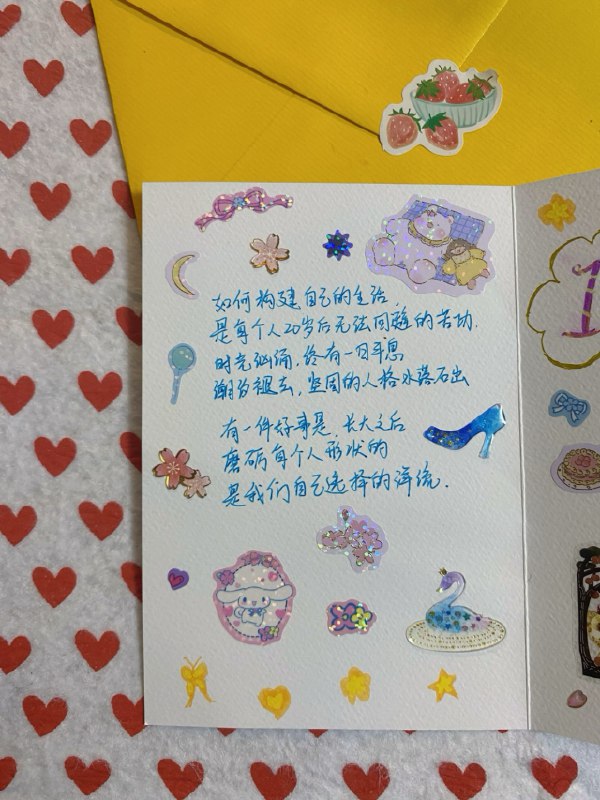 如何构建自己的生活,
是每个人20岁后无法回避的苦功.
时光汹涌,终有一日平息
潮汐褪去,坚固的人格水落石出
有一件好事是 长大之后
磨砺每个人形状的
是我们自己选择的洋流.
1